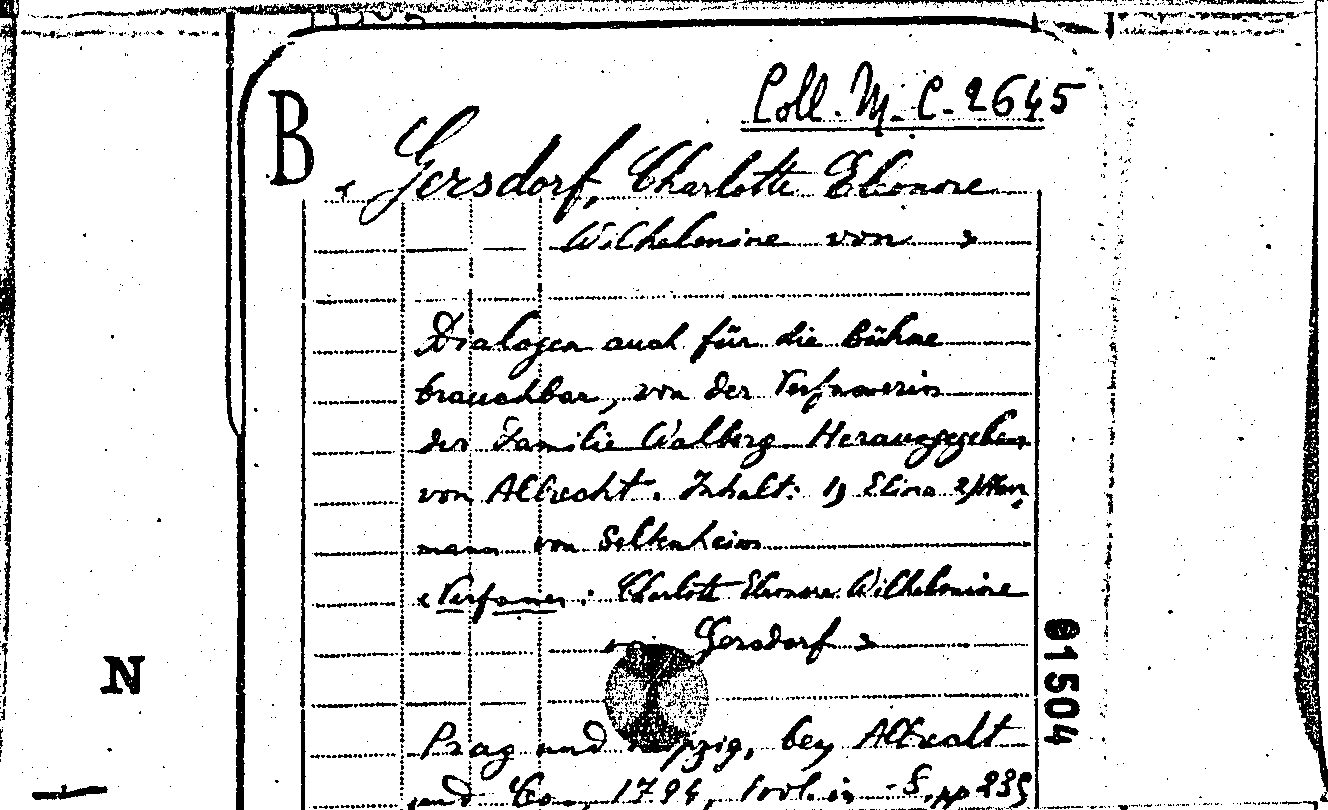 Coll. M. C. 2645
B
< Gersdorf, Charlotte Eleonore
Wilhelmine von >
Dialogen auch für die Bühne
brauchbar, von der Verfasserin
der Familie Walberg Herausgegeben
von Albrecht. Inhalt: 1) Elina 2)
mann von Seltenheim
< Verfasser : Charlotte Eleonore Wilhelmine
von Gersdorf >
01504
N
Prag und Leipzig, bey Albrecht
und Co., 1794, 1 vol. in -8, pp 235